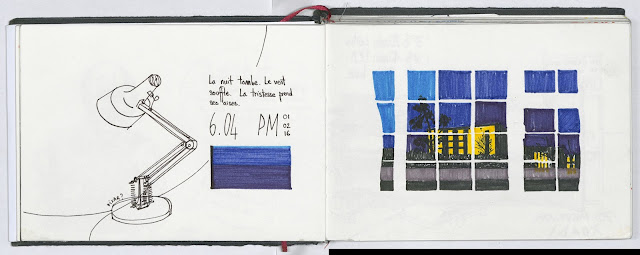 La nuit tombe. Le vent
souffle. La tristesse prend
ses aises.
6.04 PM
01
02
16